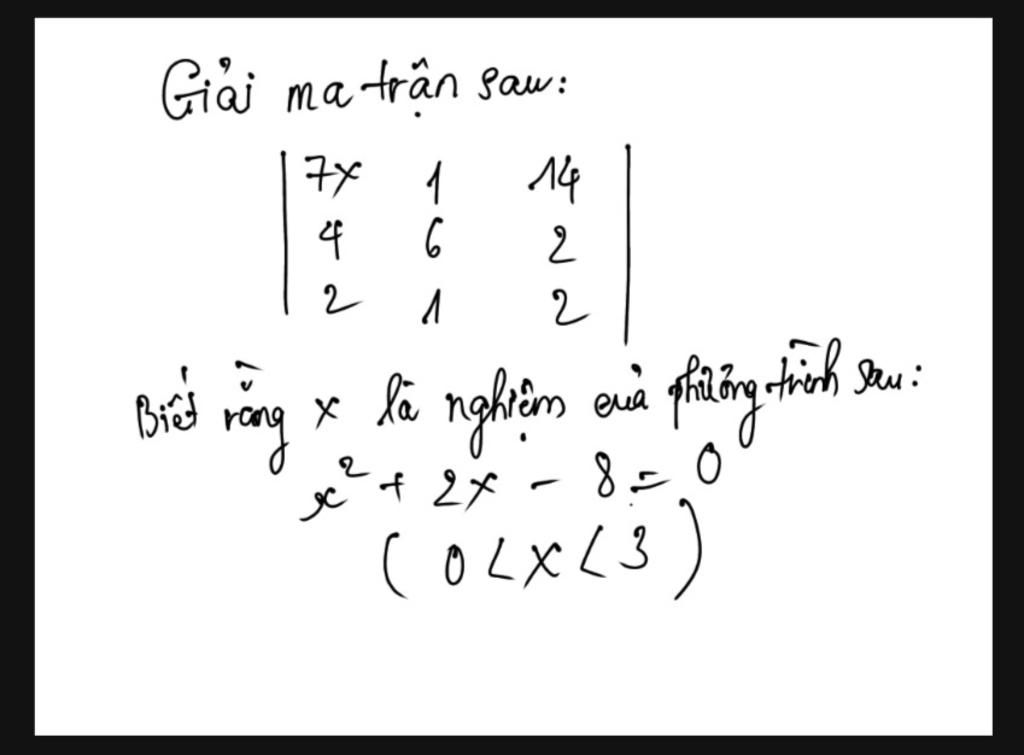 Giải ma trận sau:
| 7x 1 14 |
| 4 6 2 |
| 2 1 2 |
Biết rằng x là nghiệm của phương trình sau:
x² + 2x - 8 = 0
( 0 < x < 3 )